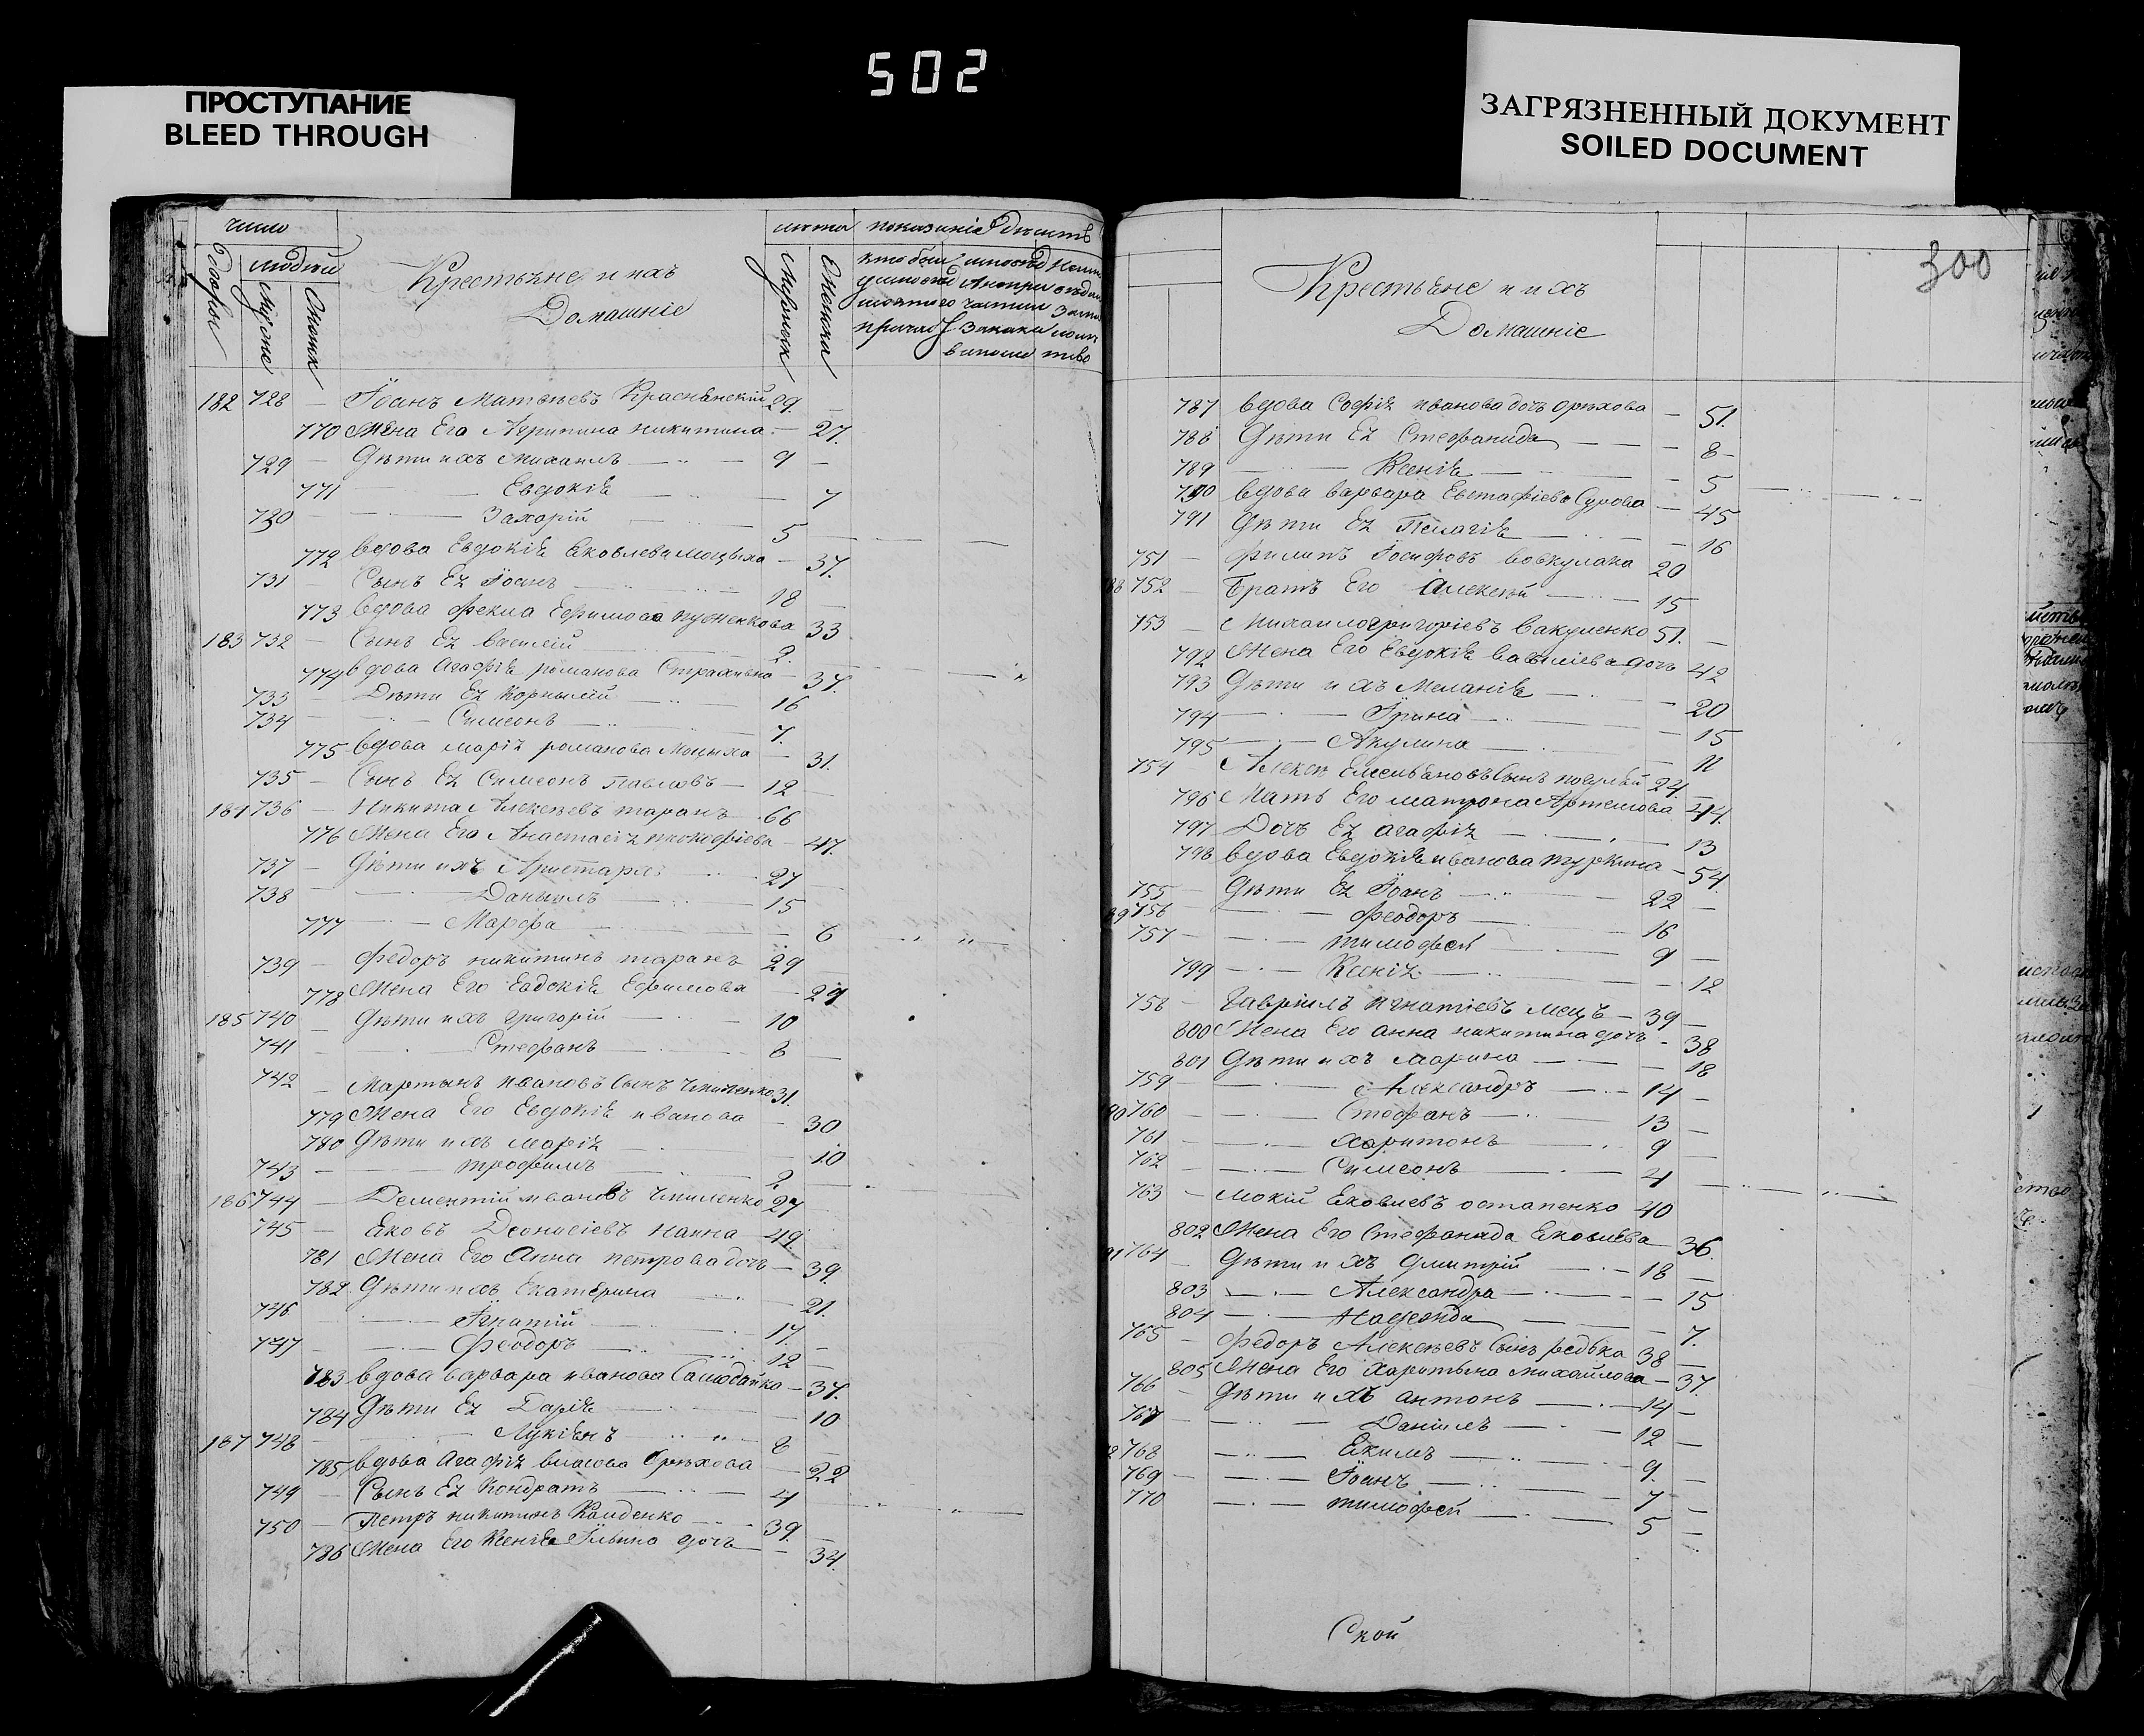 502
ПРОСТУПАНИЕ
BLEED THROUGH
ЗАГРЯЗНЕННЫЙ ДОКУМЕНТ
SOILED DOCUMENT
число
лѣта показаніе
Дворовъ людей
Крестьяне и ихъ
Домашніе
182 728 — Іоанъ Матвѣевъ Краснянскій 29. —
770 Жена Его Агрипина никитина — 27.
729 — Дѣти ихъ михаилъ — 9 —
771 — Евдокія — 7
730 — Захарій — 5 —
772 вдова Евдокія Яковлева — 37.
731 — Сынъ Ея Іоанъ — 18 —
773 вдова фекла Ефимова 33
183 732 — Сынъ Ея василій — 2.
774 вдова Агафія романова — 37.
733 — Дѣти Ея Корнилій — 16
734 — Симеонъ — 7.
775 вдова марія романова — 31.
735 — Сынъ Ея Симеонъ Павловъ — 12 —
184 736 — Никита Алексѣевъ таранъ 66
776 Жена Его Анастасія прокофіева — 47.
737 — Дѣти ихъ 27
738 — Данылъ — 15
777 — Марфа — 6
739 — федоръ никитинъ таранъ 29
778 Жена Его Евдокія Ефимова — 29
185 740 — Дѣти ихъ григорій — 10
741 — Стефанъ — 8 —
742 — Мартынъ ивановъ Сынъ 31.
779 Жена Его Евдокія иванова — 30
780 Дѣти ихъ марія — 10
743 — трофимъ — 2 —
186 744 — Дементій ивановъ 27
745 — Яковъ Деонисіевъ 49.
781 Жена Его Анна петрова дочь — 39.
782 Дѣти ихъ Екатерина — 21.
746 — Игнатій — 17.
747 — феодоръ — 12 —
783 вдова варвара иванова — 37.
784 Дѣти Ея Дарія — 10
187 748 — Лукіянъ — 8 —
785 вдова Агафія власова Орѣхова — 22
749 — Сынъ Ея Кондратъ — 4
750 — Петръ никитинъ 39.
786 Жена Его Ксенія Ильина дочь — 34.
300
Крестьяне и ихъ
Домашніе
787 вдова Софія иванова дочь орѣхова — 51.
788 Дѣти Ея Стефанида — 8 —
789 — Ксенія — 5
790 вдова варвара Евстафіева — 45
791 Дѣти Ея Пелагія — 16
751 — филипъ Іосифовъ вовкулака 20
752 — Братъ Его Алексѣй — 15
753 — Михаилъ григоріевъ вакуленко 51. —
792 Жена Его Евдокія василіева дочь 42
793 Дѣти ихъ Меланія — 20
794 — Ірина — 15
795 — Акулина — 11
754 Алексѣ Емельяновъ Сынъ 24. —
796 Мать Его матрона Артемова 44.
797 Дочь Ея агафія — 13
798 вдова Евдокія иванова — 54.
755 — Дѣти Ея Іоанъ — 22 —
756 — феодоръ — 16
757 — тимофей — 9 —
799 — Ксенія — 12
758 — гавріилъ игнатіевъ — 39 —
800 Жена Его анна никитина дочь — 38
801 Дѣти ихъ марина — 18
759 — Александръ — 14 —
760 — Стефанъ — 13 —
761 — харитонъ — 9 —
762 — Симеонъ — 4
763 — мокій Яковлевъ остапенко 40
802 Жена Его Стефанида Яковлева 36.
764 — Дѣти ихъ Дмитрій — 18 —
803 — Александра — 15
804 — Надежда — 7.
765 — федоръ Алексѣевъ Сынъ редька 38 —
805 Жена Его харитина михайлова — 37.
766 — Дѣти ихъ антонъ — 14 —
767 — Даніилъ — 12 —
768 — Якимъ — 9. —
769 — Іоанъ — 7 —
770 — тимофей — 5 —
Ской